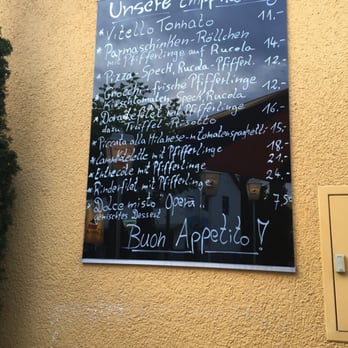 Unsere
* Vitello Tonnato 11.-
* Parmaschinken-Röllchen
mit Pfifferlinge auf Rucola 14.-
* Pizza Speck, Rucola-Pfifferl. 12.-
Gnocchi frische Pfifferlinge
Kirschtomaten Speck Rucola 12.-
* mit Pfifferlinge
dazu Trüffel Risotto 16.-
* Piccata alla Milanese-mit Tomatenspaghetti 15.-
* mit Pfifferlinge 18.-
* Entrecote mit Pfifferlinge 21.-
* Rinderfilet mit Pfifferlinge 24.-
* Dolce misto "Opera" 7,50
gemischtes Dessert
Buon Appetito!